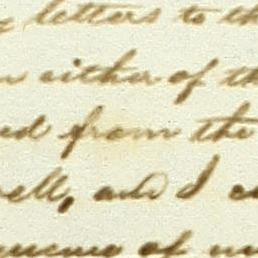 letters to th
either of th
ed from the
ell, and I
of